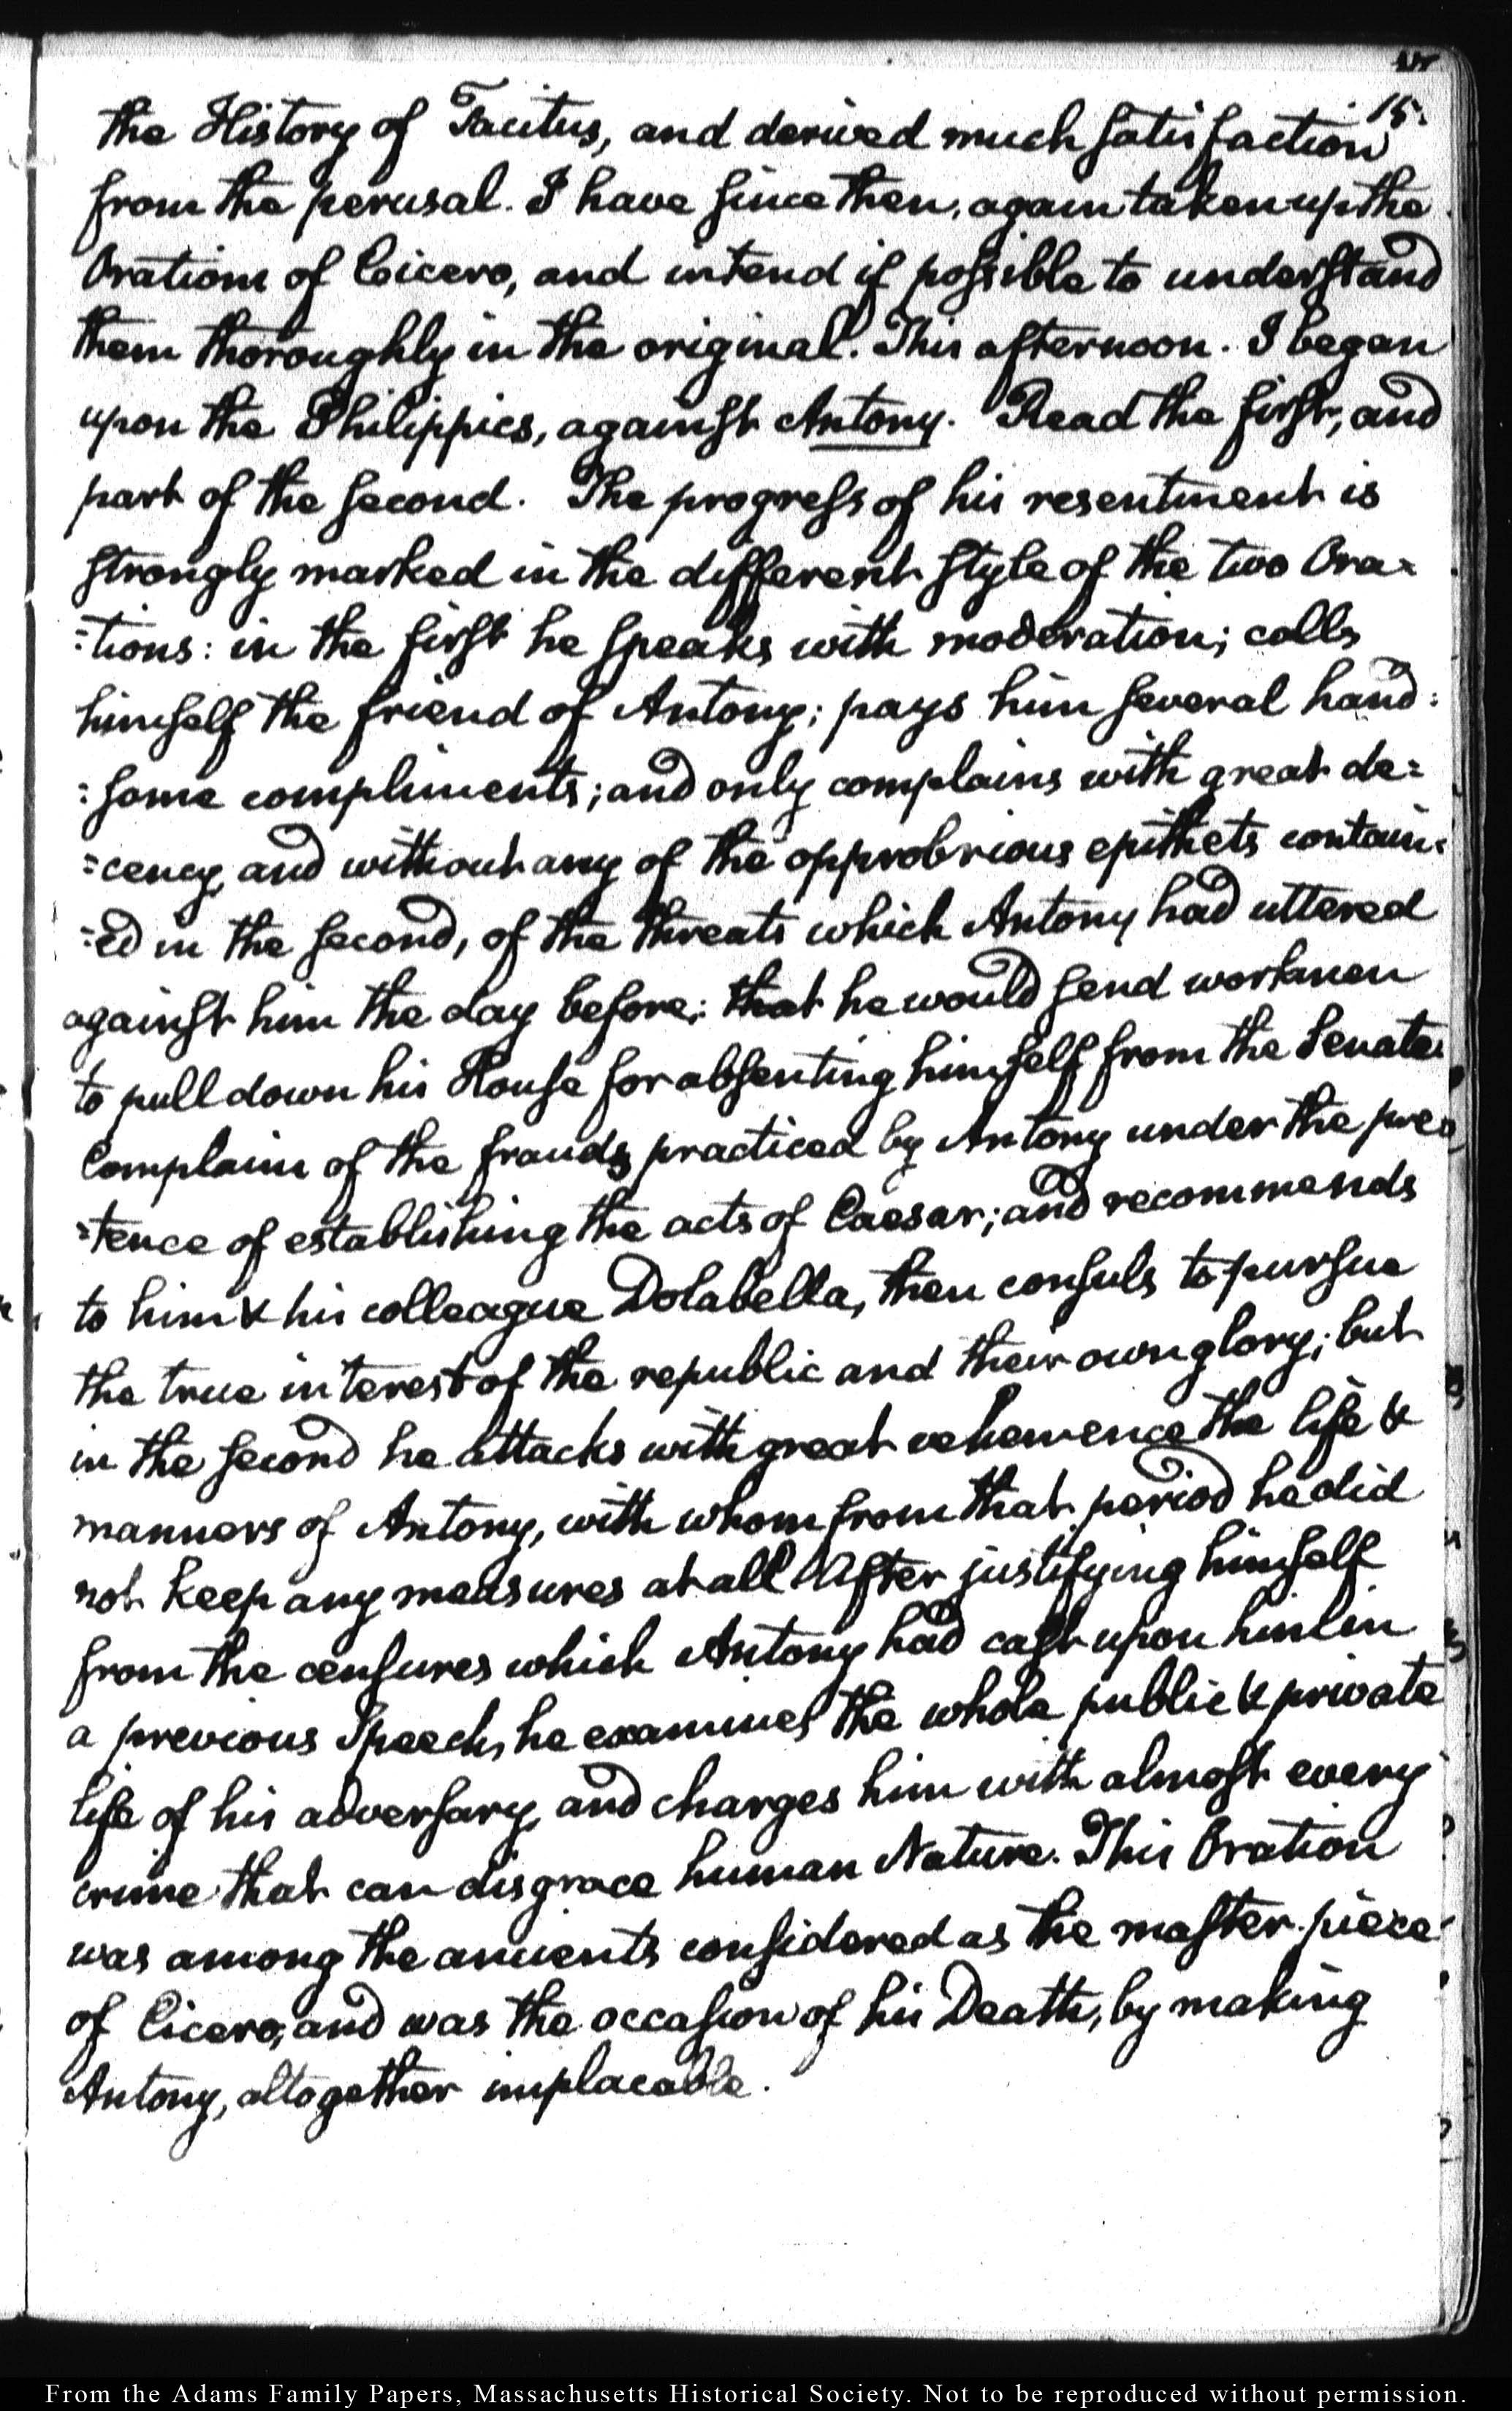 15.
the History of Tacitus, and derived much satisfaction
from the perusal. I have since then, again taken up the
Orations of Cicero, and intend if possible to understand
them thoroughly in the original. This afternoon. I began
upon the Philippics, against Antony. Read the first, and
part of the second. The progress of his resentment is
strongly marked in the different style of the two Ora=
=tions: in the first he speaks with moderation; calls
himself the friend of Antony; pays him several hand:
:some compliments; and only complains with great de=
=cency, and without any of the opprobrious epithets contain=
=ed in the second, of the threats which Antony had uttered
against him the day before; that he would send workmen
to pull down his House for absenting himself from the Senate.
Complains of the frauds practiced by Antony under the pre=
=tence of establishing the acts of Caesar; and recommends
to him & his colleague Dolabella, then consuls to pursue
the true interest of the republic and their own glory; but
in the second he attacks with great vehemence the life &
manners of Antony, with whom from that period he did
not keep any measures at all. After justifying himself
from the censures which Antony had cast upon him in
a previous Speech, he examines the whole public & private
life of his adversary, and charges him with almost every
crime that can disgrace human Nature. This Oration
was among the ancients considered as the master-piece
of Cicero, and was the occasion of his Death, by making
Antony, altogether implacable.
From the Adams Family Papers, Massachusetts Historical Society. Not to be reproduced without permission.